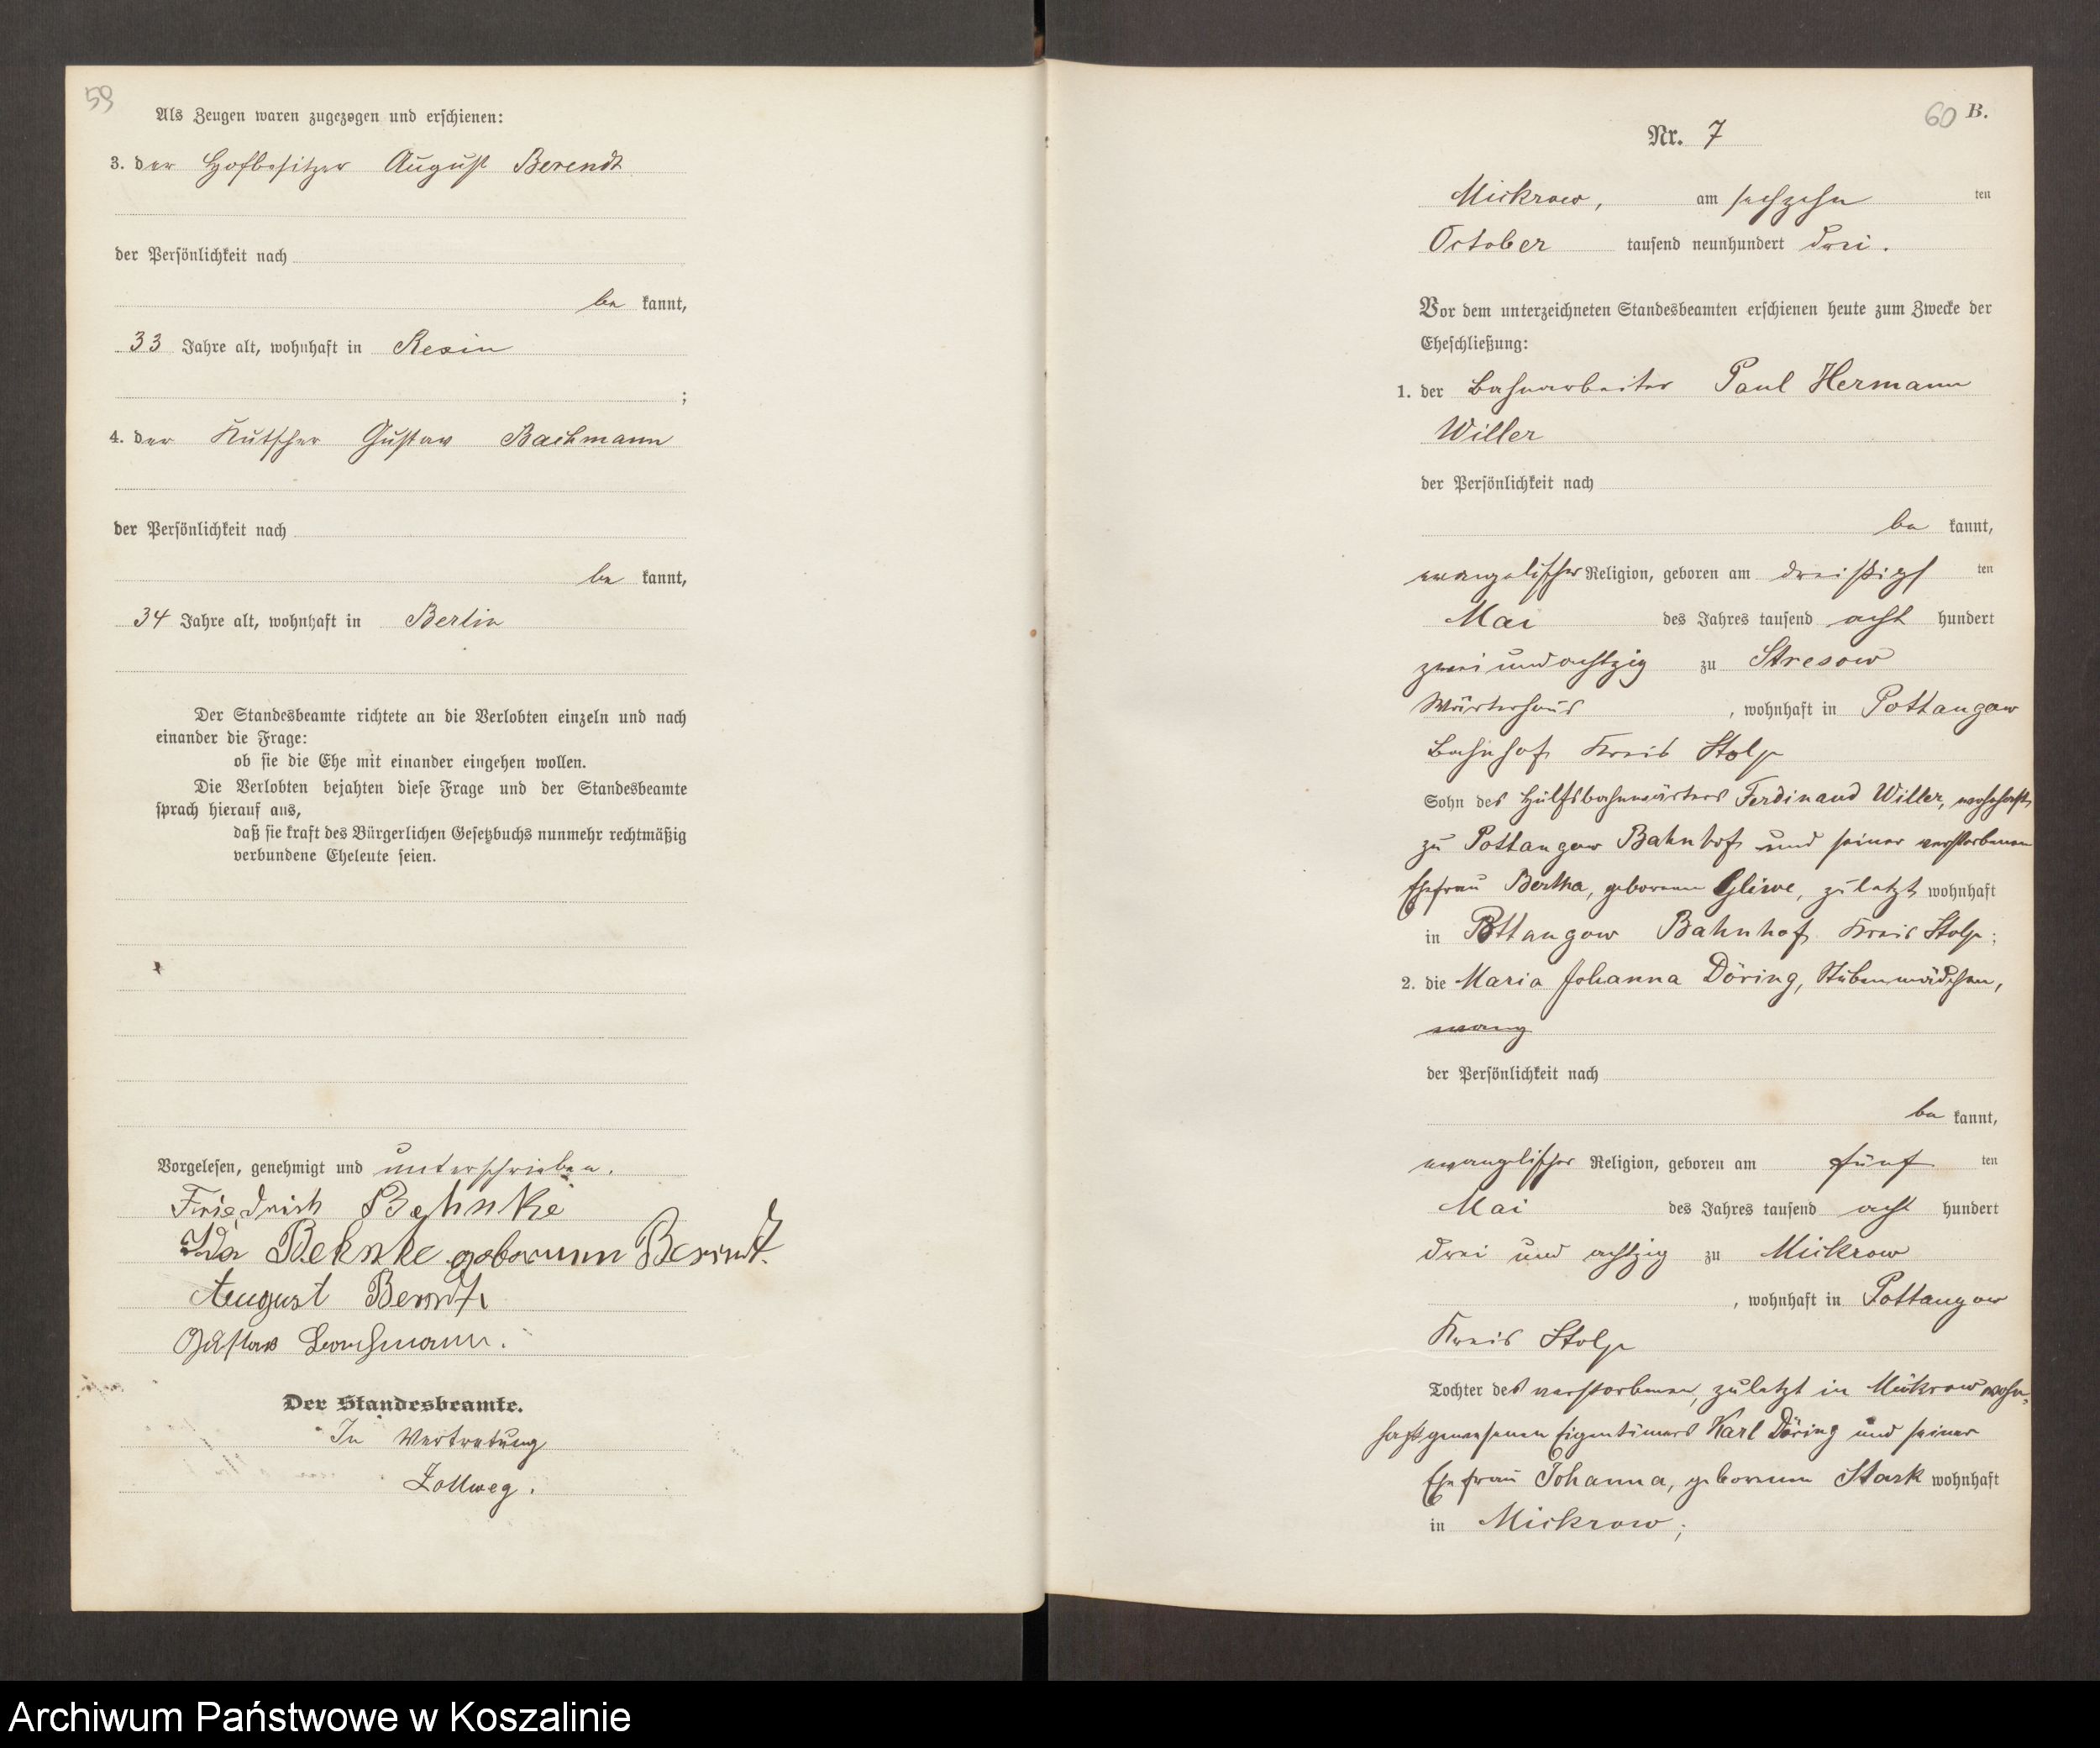 59
Als Zeugen waren zugezogen und erschienen:
3. der Hofbesitzer August Berendt
der Persönlichkeit nach
be kannt,
33 Jahre alt, wohnhaft in Resin
;
4. der Kutscher Gustav Bachmann
der Persönlichkeit nach
be kannt,
34 Jahre alt, wohnhaft in Berlin
Der Standesbeamte richtete an die Verlobten einzeln und nach
einander die Frage:
ob sie die Ehe mit einander eingehen wollen.
Die Verlobten bejahten diese Frage und der Standesbeamte
sprach hierauf aus,
daß sie kraft des Bürgerlichen Gesetzbuchs nunmehr rechtmäßig
verbundene Eheleute seien.
Vorgelesen, genehmigt und unterschrieben.
Friedrich Behnke
Ida Behnke geborenen Berendt.
August Berendt
Gustav Bachmann.
Der Standesbeamte.
In Vertretung
Zollweg.
60 B.
Nr. 7
Mickrow, am sechzehn ten
October tausend neunhundert drei.
Vor dem unterzeichneten Standesbeamten erschienen heute zum Zwecke der
Eheschließung:
1. der Bahnarbeiter Paul Hermann
Willer
der Persönlichkeit nach
be kannt,
evangelischer Religion, geboren am dreißigs ten
Mai des Jahres tausend acht hundert
zwei und achtzig zu Stresow
Wärterhaus , wohnhaft in Pottangow
Bahnhof Kreis Stolp
Sohn des Hülfsbahnwärters Ferdinand Willer, wohnhaft
zu Pottangow Bahnhof und seiner verstorbenen
Ehefrau Bertha, geborenen Gliwe, zuletzt wohnhaft
in Pottangow Bahnhof Kreis Stolp;
2. die Maria Johanna Döring, Stubenmädchen,
evang
der Persönlichkeit nach
be kannt,
evangelischer Religion, geboren am fünf ten
Mai des Jahres tausend acht hundert
drei und achtzig zu Mickrow
, wohnhaft in Pottangow
Kreis Stolp
Tochter des verstorbenen, zuletzt in Mickrow wohn-
haft gewesenen Eigentümers Karl Döring und seiner
Ehefrau Johanna, geborenen Stark wohnhaft
in Mickrow;
Archiwum Państwowe w Koszalinie